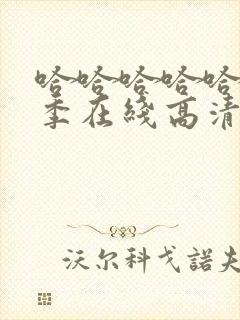 哈哈哈哈哈
季在綫高清
沃尔科戈諾夫